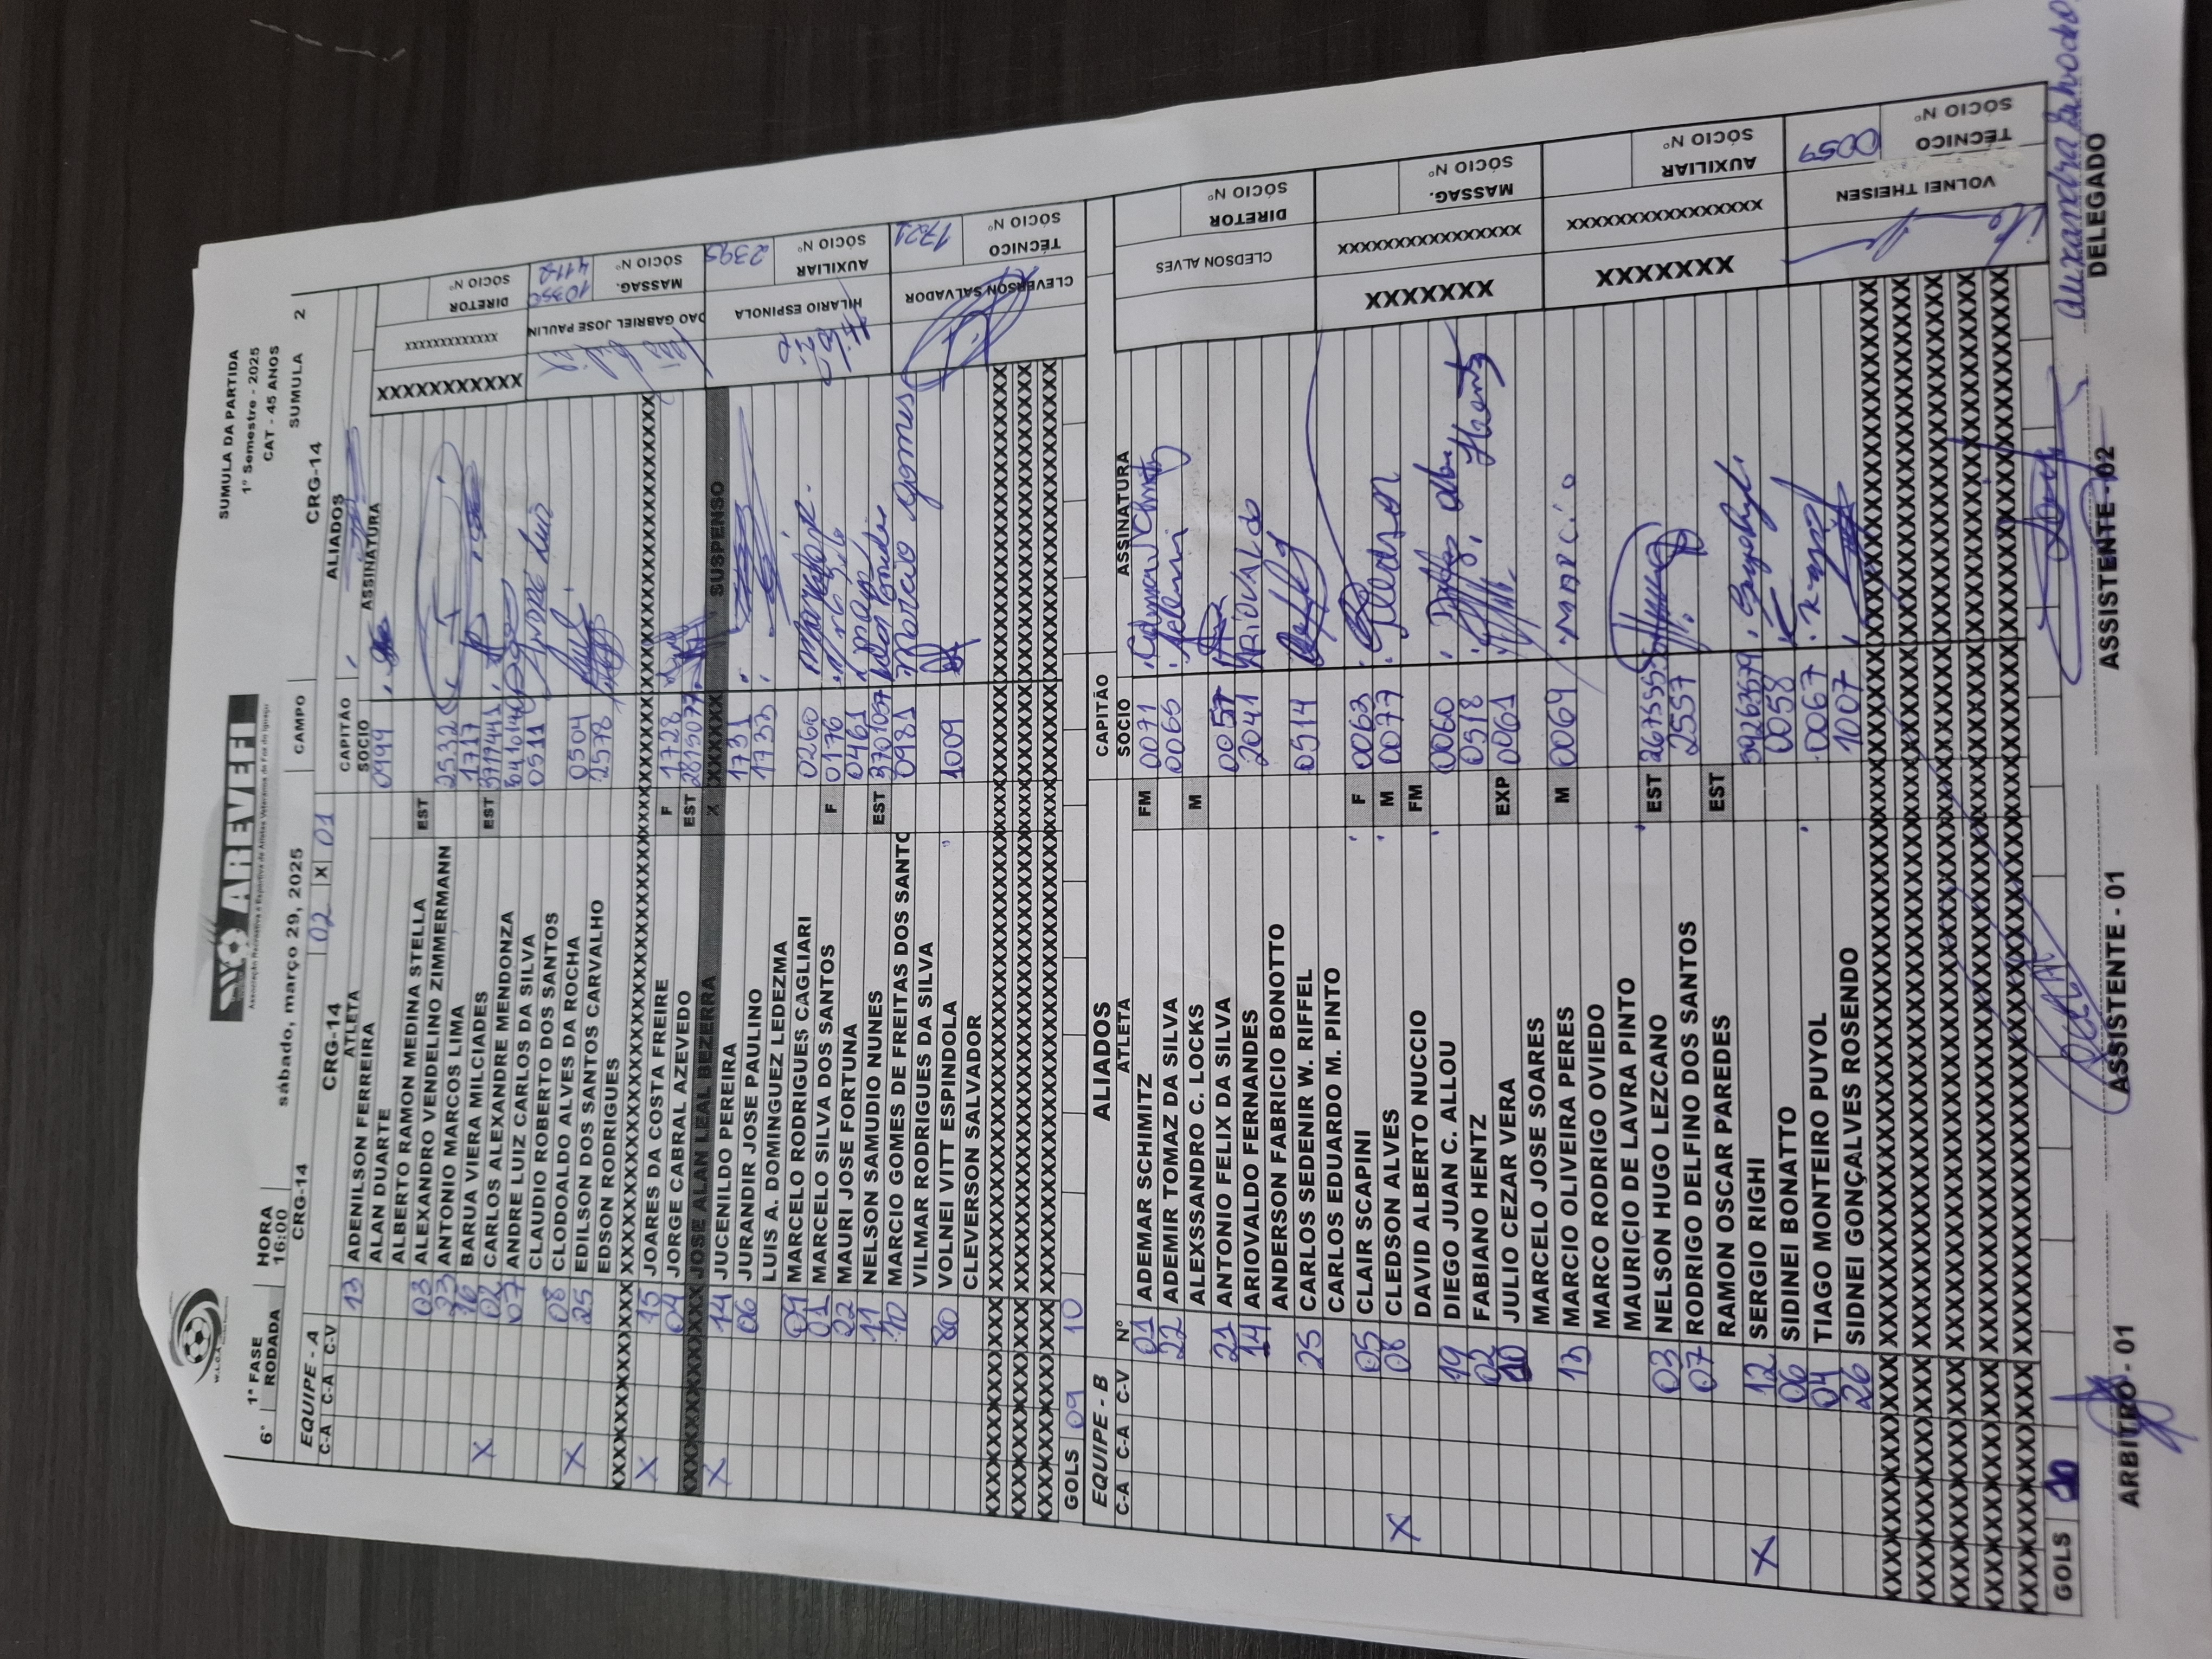 W.L.O.A
AREVEFI
Associação Recreativa e Esportiva de Atletas Veteranos de Foz do Iguaçu
SUMULA DA PARTIDA
1º Semestre - 2025
CAT - 45 ANOS
6ª 1ª FASE RODADA HORA 16:00 sábado, março 29, 2025 CAMPO SUMULA 2
CRG-14 CRG-14
EQUIPE - A CRG-14 02 X 01 ALIADOS
C-A C-A C-V ATLETA CAPITÃO
SOCIO ASSINATURA
13 ADENILSON FERREIRA 0994
ALAN DUARTE
ALBERTO RAMON MEDINA STELLA EST
03 ALEXANDRO VENDELINO ZIMMERMANN 2532
23 ANTONIO MARCOS LIMA 1717
16 BARUA VIERA MILCIADES EST
X 02 CARLOS ALEXANDRE MENDONZA
07 ANDRE LUIZ CARLOS DA SILVA 0511 André Luiz
CLAUDIO ROBERTO DOS SANTOS
08 CLODOALDO ALVES DA ROCHA 0504
X 25 EDILSON DOS SANTOS CARVALHO 2578
EDSON RODRIGUES
XXXXXXXXXXXXXXXXXXXXXXXXXXXXXXXX
X 15 JOARES DA COSTA FREIRE F 1728
04 JORGE CABRAL AZEVEDO EST
XXXXXXXXXX JOSE ALAN LEAL BEZERRA X XXXXXXX SUSPENSO
X 14 JUCENILDO PEREIRA 1731
06 JURANDIR JOSE PAULINO 1733
LUIS A. DOMINGUEZ LEDEZMA
09 MARCELO RODRIGUES CAGLIARI 0260
01 MARCELO SILVA DOS SANTOS F 0176
22 MAURI JOSE FORTUNA 0461
11 NELSON SAMUDIO NUNES EST
10 MARCIO GOMES DE FREITAS DOS SANTO 0981 Marcio Gomes
VILMAR RODRIGUES DA SILVA
80 VOLNEI VITT ESPINDOLA 1009
CLEVERSON SALVADOR
XXXXXXXXXXXXXXXXXXXXXXXXXXXXXXXX
XXXXXXXXXXXXXXXXXXXXXXXXXXXXXXXX
XXXXXXXXXXXXXXXXXXXXXXXXXXXXXXXX
GOLS 09 10
XXXXXXXXXXX
XXXXXXXXXXXXX
DIRETOR
SÓCIO Nº
JOSE PAULIN
MASSAG.
SÓCIO Nº 4112
HILARIO ESPINOLA
AUXILIAR
SÓCIO Nº 2395
CLEVERSON SALVADOR
TÉCNICO
SÓCIO Nº 1721
EQUIPE - B ALIADOS CAPITÃO
C-A C-A C-V Nº ATLETA SOCIO ASSINATURA
01 ADEMAR SCHIMITZ FM 0071
22 ADEMIR TOMAZ DA SILVA 0065 Ademir
ALEXSSANDRO C. LOCKS M
21 ANTONIO FELIX DA SILVA 0057
14 ARIOVALDO FERNANDES 2041 ARIOVALdo
ANDERSON FABRICIO BONOTTO
25 CARLOS SEDENIR W. RIFFEL 0514
CARLOS EDUARDO M. PINTO
05 CLAIR SCAPINI F 0063
X 08 CLEDSON ALVES M 0077 Cledson
DAVID ALBERTO NUCCIO FM
19 DIEGO JUAN C. ALLOU 0060
02 FABIANO HENTZ 0518 Hentz
10 JULIO CEZAR VERA EXP 0061
MARCELO JOSE SOARES
13 MARCIO OLIVEIRA PERES M 0069 MARCIO
MARCO RODRIGO OVIEDO
MAURICIO DE LAVRA PINTO
03 NELSON HUGO LEZCANO EST
07 RODRIGO DELFINO DOS SANTOS 2557
RAMON OSCAR PAREDES EST
X 12 SERGIO RIGHI
06 SIDINEI BONATTO 0058
04 TIAGO MONTEIRO PUYOL 0067
26 SIDNEI GONÇALVES ROSENDO 1007
XXXXXXXXXXXXXXXXXXXXXXXXXXXXXXXX
XXXXXXXXXXXXXXXXXXXXXXXXXXXXXXXX
XXXXXXXXXXXXXXXXXXXXXXXXXXXXXXXX
XXXXXXXXXXXXXXXXXXXXXXXXXXXXXXXX
XXXXXXXXXXXXXXXXXXXXXXXXXXXXXXXX
GOLS
CLEDSON ALVES
DIRETOR
SÓCIO Nº
XXXXXXX
XXXXXXXXXXXXXXXX
MASSAG.
SÓCIO Nº
XXXXXXX
XXXXXXXXXXXXXXXX
AUXILIAR
SÓCIO Nº
VOLNEI THEISEN
TÉCNICO
SÓCIO Nº 0059
ARBITRO - 01 ASSISTENTE - 01 ASSISTENTE - 02 DELEGADO